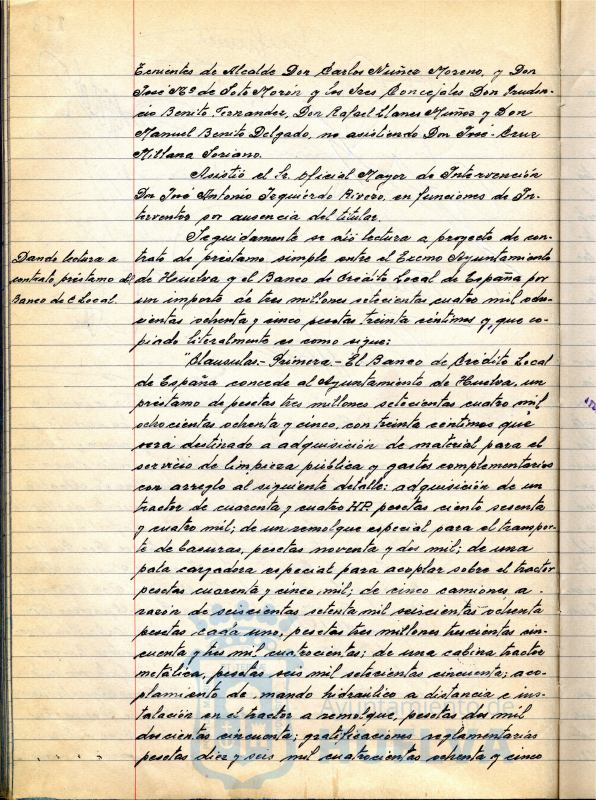 Tenientes de Alcalde Don Carlos Nuñez Moreno, y Don
José Mª de Soto Morón y los Sres Concejales Don Pruden-
cio Benito Fernandez, Don Rafael Llanes Muñoz y Don
Manuel Benito Delgado, no asistiendo Don José Cruz
Millana Soriano.
Asistió el Sr. Oficial Mayor de Intervención
Don José Antonio Izquierdo Rivero, en funciones de In-
terventor por ausencia del titular.
Seguidamente se dió lectura a proyecto de con-
Dando lectura a
contrato préstamo del
Banco de C. Local.
trato de préstamo simple entre el Excmo Ayuntamiento
de Huelva y el Banco de Crédito Local de España por
un importe de tres millones setecientas cuatro mil ocho-
cientas ochenta y cinco pesetas treinta céntimos y, que co-
piado literalmente es como sigue:
"Clausulas.- Primera.- El Banco de Crédito Local
de España concede al Ayuntamiento de Huelva, un
préstamo de pesetas tres millones setecientas cuatro mil
ochocientas ochenta y cinco, con treinta centimos que
será destinado a adquisición de material para el
servicio de limpieza pública y gastos complementarios
con arreglo al siguiente detalle: adquisición de un
tractor de cuarenta y cuatro HP. pesetas ciento sesenta
y cuatro mil; de un remolque especial para el transpor-
te de basuras, pesetas noventa y dos mil; de una
pala cargadora especial para acoplar sobre el tractor
pesetas cuarenta y cinco mil; de cinco camiones a
razón de seiscientas setenta mil seiscientas ochenta
pesetas cada uno, pesetas tres millones trescientas cin-
cuenta y tres mil cuatrocientas; de una cabina tractor
metálica, pesetas seis mil setecientas cincuenta; aco-
plamiento de mando hidráulico a distancia e ins-
talación en el tractor a remolque, pesetas dos mil
doscientas cincuenta; gratificaciones reglamentarias
pesetas diez y seis mil cuatrocientas ochenta y cinco
Ayuntamiento de
HUELVA